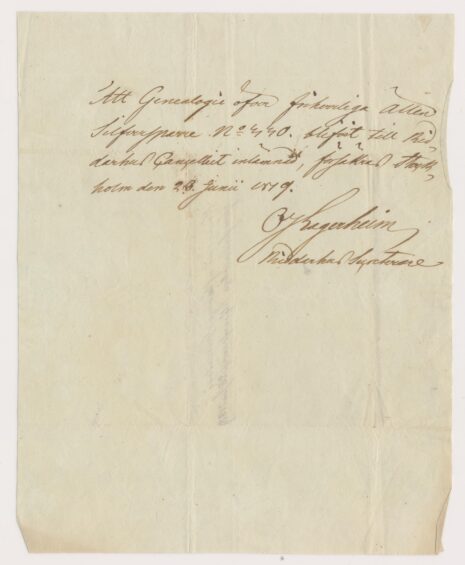 Att Genealogie öfver friherrliga Ätten
Silfversparre No blifvit till Rid-
derhus Cancelliet inlemnad, försäkras Stock-
holm den 28 Junii 1819.
Lagerheim
Ridderhus Secreterare